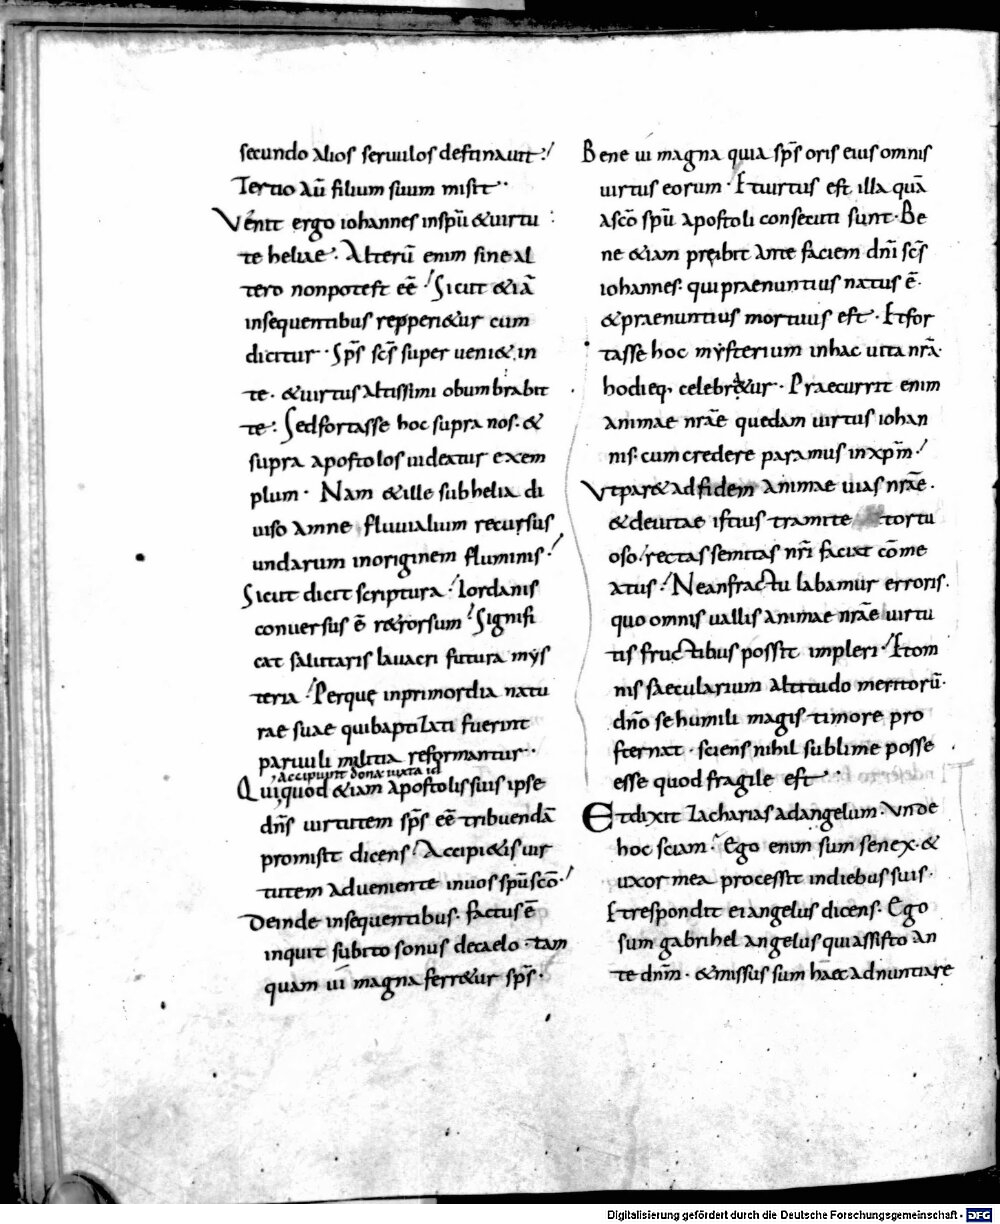 secundo alios seruulos destinauit:
Tertio aū filium suum misit··
Venit ergo iohannes inspū &uirtu
te heliae. Alterū enim sine al
tero nonpotest eē. Sicut &iā
insequentibus repperi&ur cum
dicitur· Sps̄ scs̄ super ueni&in
te. &uirtus altissimi obumbrabit
te: Sedfortasse hoc supra nos. &
supra apostolos uideatur exem
plum· Nam &ille subhelia di
uiso amne fluuialium recursus
undarum inoriginem fluminis·
Sicut dicit scriptura. Iordanis
conuersus ē r&rorsum. Signifi
cat salutaris lauacri futura mys
teria. Perquę inprimordia natu
rae suae quibaptizati fuerint
paruuli militia reformantur··
accipiunt dona iuxta id
Quiquod &iam apostolissuis ipse
dn̄s uirtutem sps̄ eē tribuendā
promisit dicens. Accipi&is uir
tutem adueniente inuos spūscō·
Deinde insequentibus. factusē
inquit subito sonus decaelo·tam
quam ui magna ferr&ur sps̄·
Bene ui magna quia sps̄ oris eius omnis
uirtus eorum· Etuirtus est illa quā
ascō spū apostoli consecuti sunt·Be
ne &iam pręibit ante faciem dn̄i scs̄
iohannes. quipraenuntius natus ē.
&praenuntius mortuus est· Etfor
tasse hoc mysterium inhac uita nr̄a·
hodieq, celebr&ur· Praecurrit enim
animae nrāe quedam uirtus iohan
nis. cumcredere paramus inxpm̄.
Vtpar&adfidem animae uias nrāe.
&deuitae istius tramite tortu
oso. rectas semitas nr̄i faciat cōme
atus. Neanfractu labamur erroris.
quo omnis uallis animae nrāe uirtu
tis fructibus possit impleri. Etom
nis saecularium altitudo meritorū·
dn̄o sehumili magis timore pro
sternat· sciens nihil sublime posse
esse quod fragile est··
Etdixit Zacharias adangelum· Vnde
hoc sciam. Ego enim sum senex·&
uxor mea processit indiebus suis·
Etrespondit ei angelus dicens. Ego
sum gabrihel angelus quiassisto an
te dn̄m· &missus sum haec adnuntiare
Digitalisierung gefördert durch die Deutsche Forschungsgemeinschaft - DFG